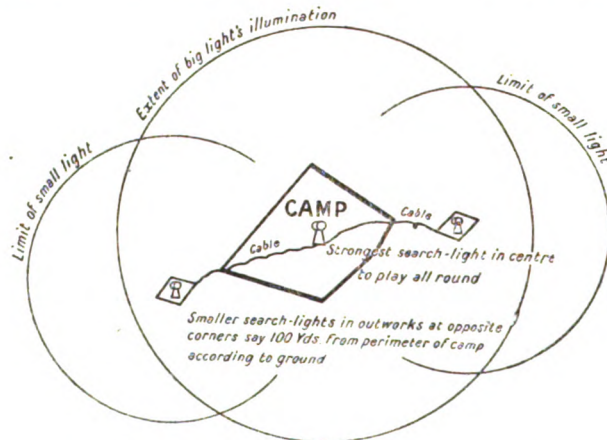 Extent of big light's illumination
Limit of small light
Limit of small light
CAMP
Cable
Cable
Strongest search-light in centre
to play all round
Smaller search-lights in outworks at opposite
corners say 100 Yds. From perimeter of camp
according to ground